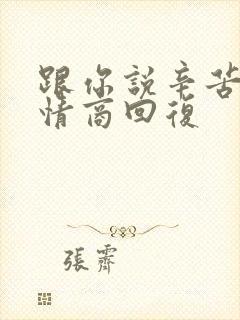 跟你說辛苦
情商回復
張霽